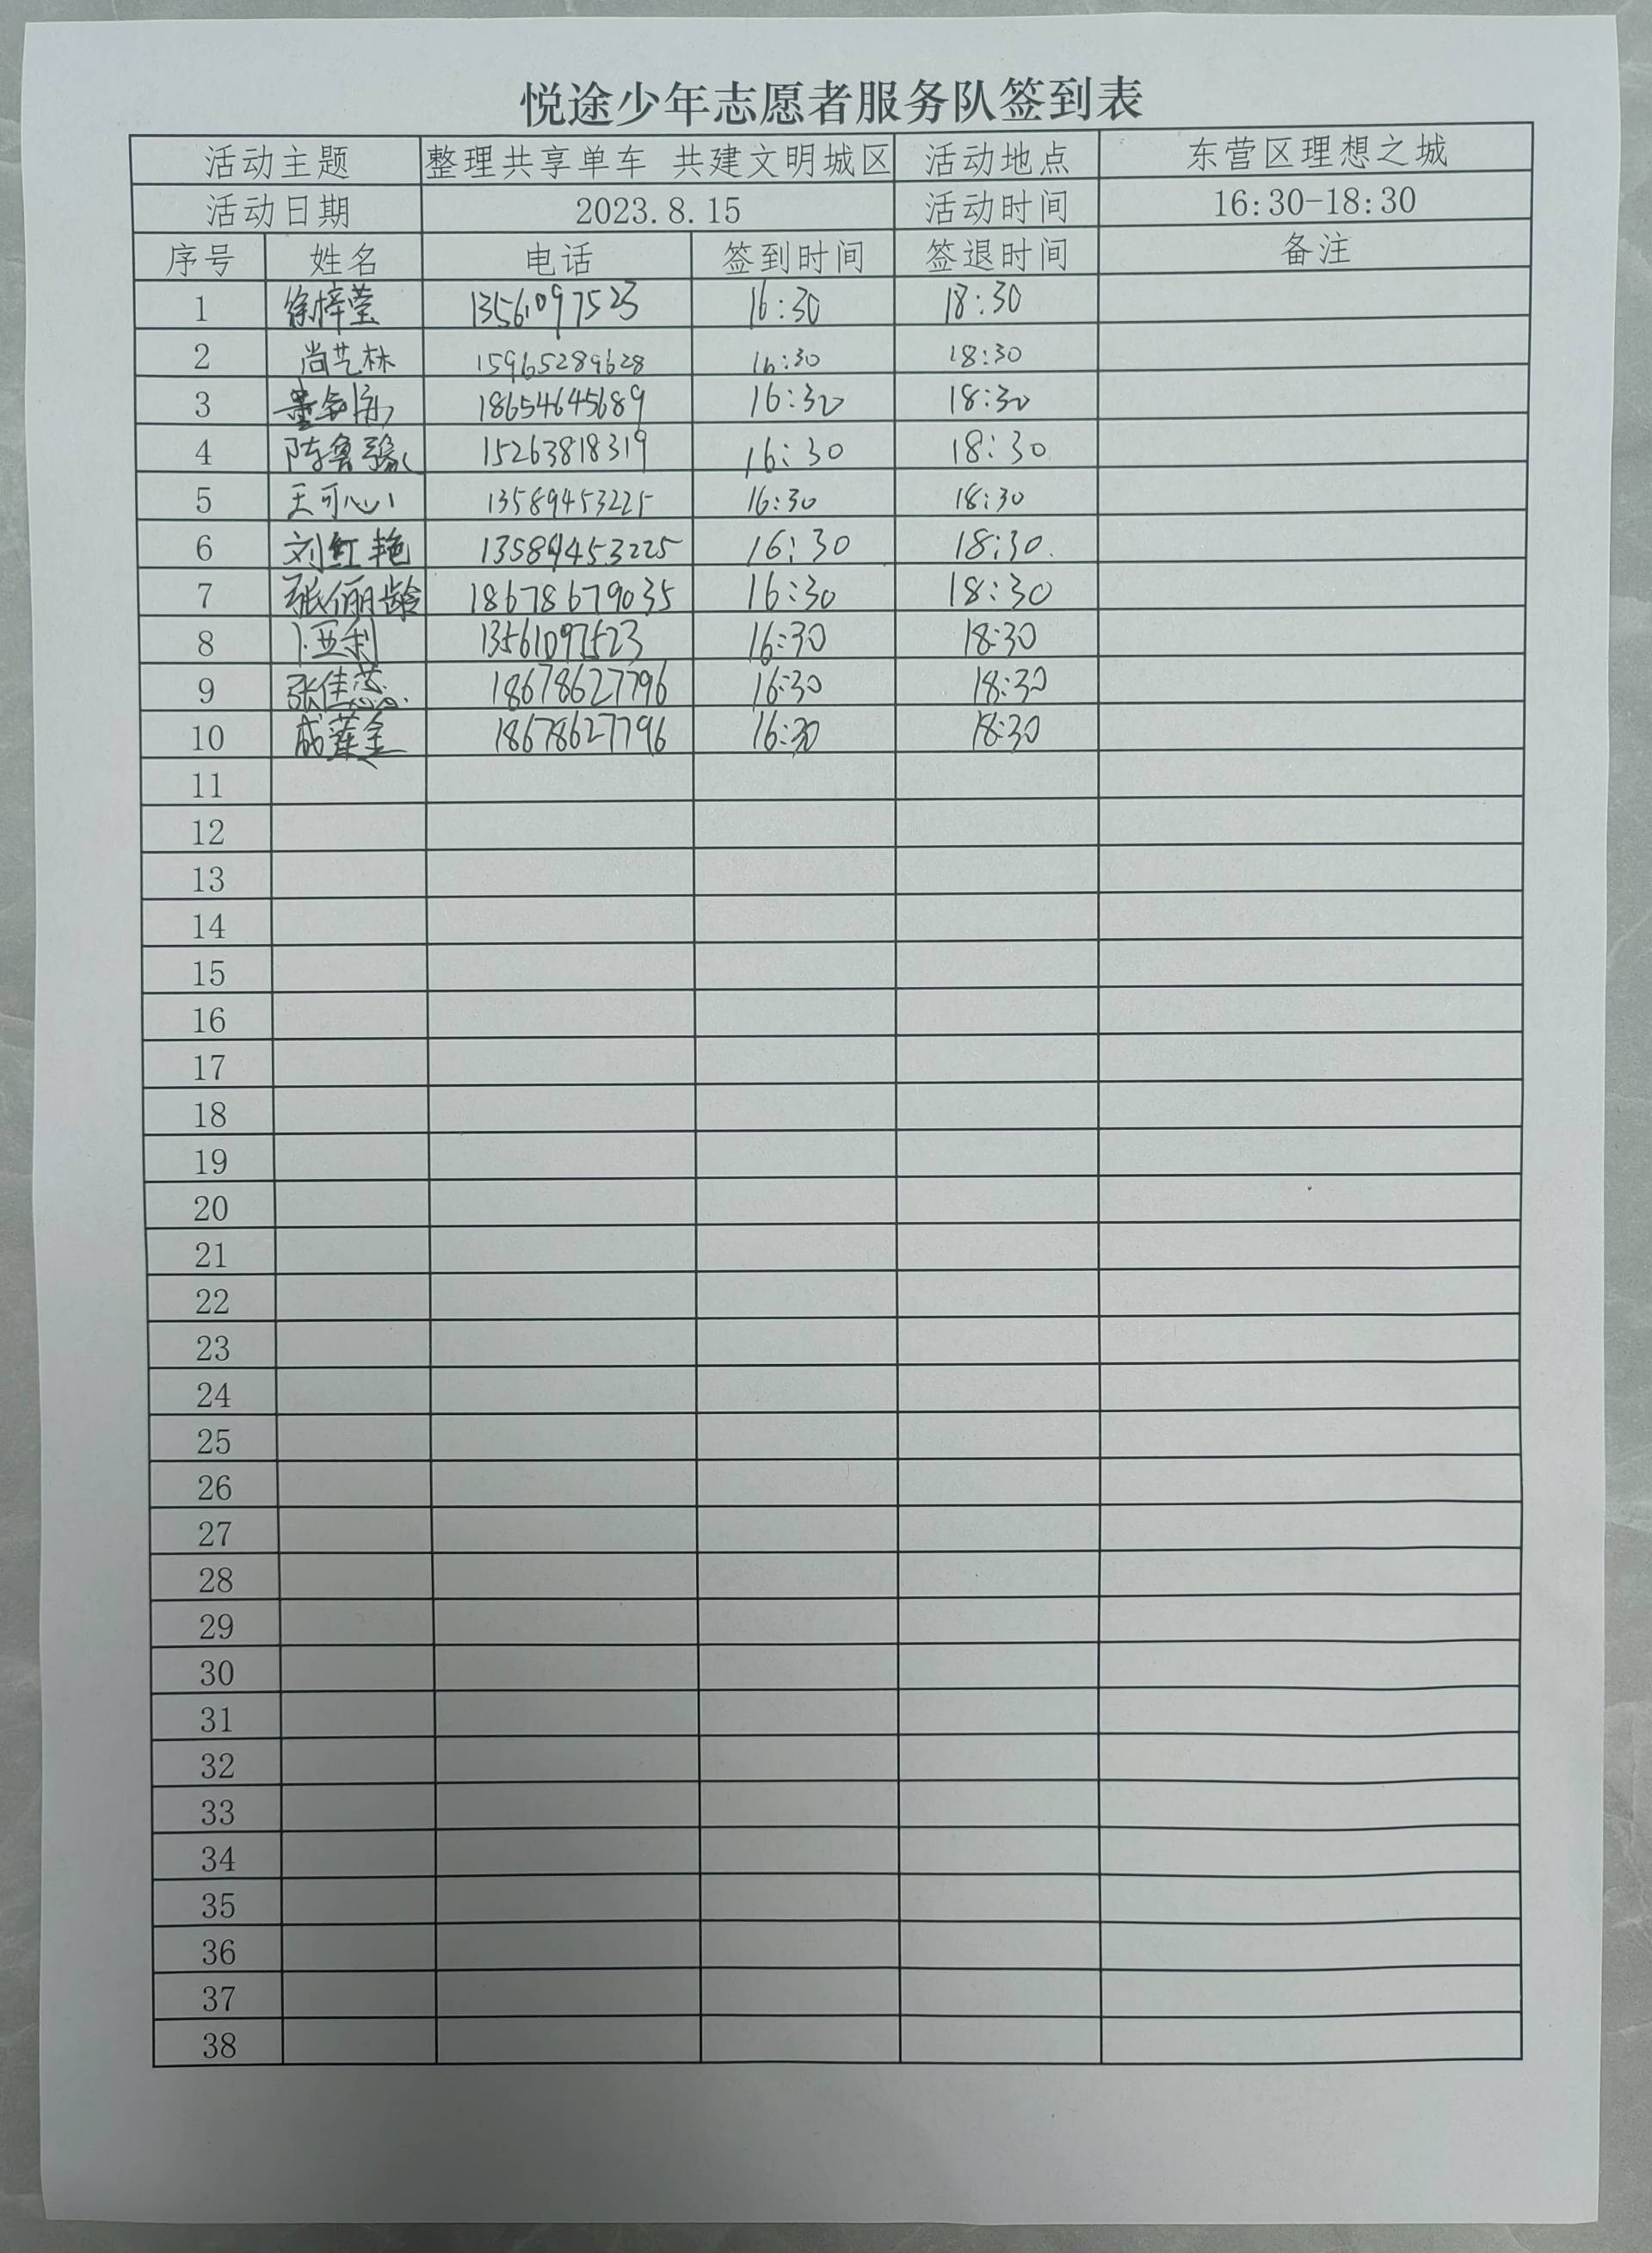 悦途少年志愿者服务队签到表
活动主题 整理共享单车 共建文明城区 活动地点 东营区理想之城
活动日期 2023.8.15 活动时间 16:30-18:30
序号 姓名 电话 签到时间 签退时间 备注
1 徐梓莹 13561097523 16:30 18:30
2 尚艺林 15965289628 16:30 18:30
3 18654645689 16:30 18:30
4 陈鲁豫 15263818319 16:30 18:30
5 王可心 13589453225 16:30 18:30
6 刘红艳 13589453225 16:30 18:30
7 张俪龄 18678679035 16:30 18:30
8 卜亚利 13561097523 16:30 18:30
9 张佳蕊 18678627796 16:30 18:30
10 成莲金 18678627796 16:30 18:30
11
12
13
14
15
16
17
18
19
20
21
22
23
24
25
26
27
28
29
30
31
32
33
34
35
36
37
38